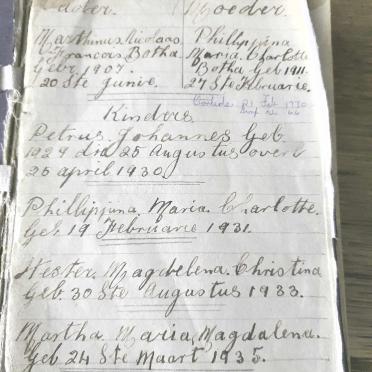 Vader.
Moeder.
Marthinus Nicolaas
Francois Botha
Gebr 1907.
20 Ste Junie.
Phillipjina
Maria Charlotte
Botha Geb 1911.
27 Ste Februarie.
21 Feb 1990
Kinders
Petrus Johannes Geb.
1929 die 25 Augustus overl
25 april 1930.
Phillipjina Maria Charlotte.
Geb 19 Februarie 1931.
Hester Magdelena Christina
Geb. 30 Ste Augustus 1933.
Martha Maria Magdalena.
Geb 24 Ste Maart 1935.